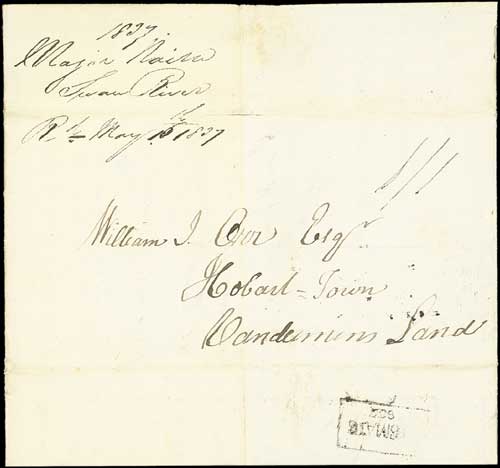 1837.
Major Nairn
Swan River
R May 16 1837
William J. Orr Esqr
Hobart-Town
Vandemins Land